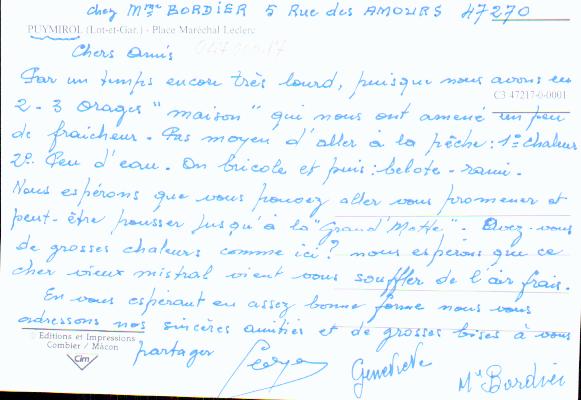 chez Mme BORDIER 5 Rue des AMOURS 47270
PUYMIROL (Lot-et-Gar.) - Place Maréchal Leclerc
Chers Amis
Par un temps encore très lourd, puisque nous avons eu
2-3 orages "maison" qui nous ont amené un peu
C3 47217-0-0001
de fraicheur. Pas moyen d'aller à la pêche: 1º chaleur
2º. Peu d'eau. On bricole et puis: belote-rami.
Nous espérons que vous pouvez aller vous promener et
peut-être pousser jusqu'à la "Grand'Motte". Avez-vous
de grosses chaleurs comme ici? nous espérons que ce
cher vieux mistral vient vous souffler de l'air frais.
En vous espérant en assez bonne forme nous vous
adressons nos sincères amitiés et de grosses bises à vous
partager
Editions et Impressions
Combier / Mâcon
Cim
Geneviève
Me Bordier